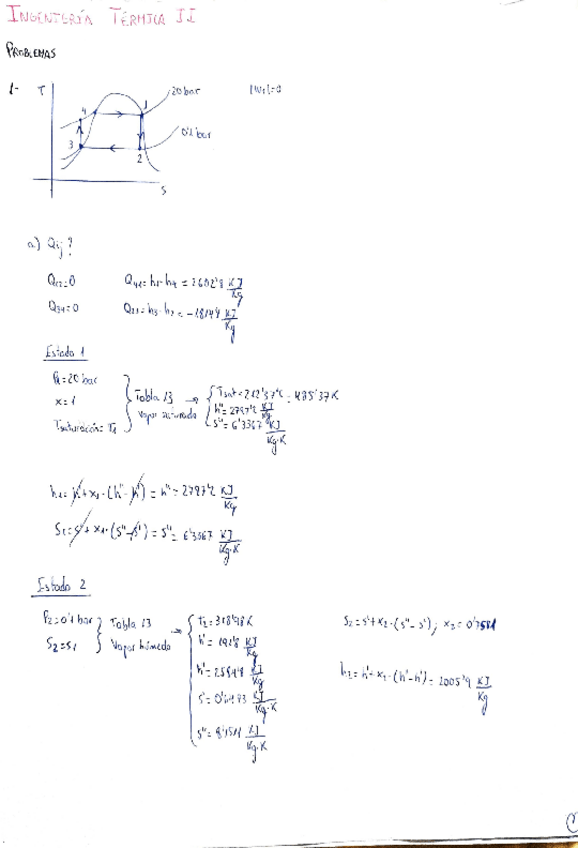 INGENIERÍA TÉRMICA II
PROBLEMAS
1-
T
20 bar
0'1 bar
4
1
3
2
S
a) Qij?
Q12=0
Q41=h1-h4 = 2602'8 KJ/Kg
Q34=0
Q23=h3-h2 = -1814'4 KJ/Kg
Estado 1
P1=20 bar
x=1
Tsaturación= T1
Tabla 13
Vapor saturado
Tsat = 212'37ºC = 485'37 K
h''= 2797'2 KJ/Kg
s''= 6'3367 KJ/Kg·K
h1= h'+x1·(h''-h') = h''= 2797'2 KJ/Kg
S1= s'+x1·(s''-s') = s''= 6'3367 KJ/Kg·K
Estado 2
P2=0'1 bar
S2=S1
Tabla 13
Vapor húmedo
T2= 318'98 K
h'= 191'8 KJ/Kg
s'= 0'6493 KJ/Kg·K
S2= s'+x2·(s''-s'); x2=0'7581
h2= h'+x2·(h''-h') = 2005'9 KJ/Kg